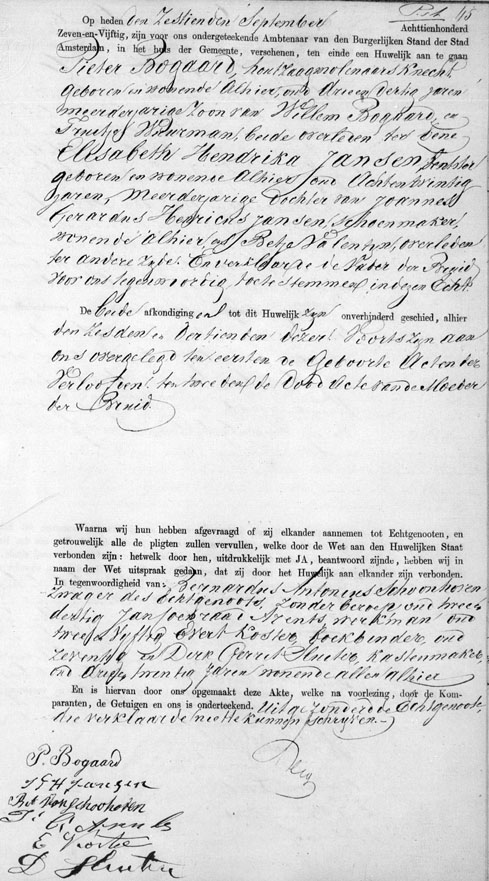 45
Op heden den Zestienden September Achttienhonderd
Zeven-en-Vijftig, zijn voor ons ondergeteekende Ambtenaar van den Burgerlijken Stand der Stad
Amsterdam, in het huis der Gemeente, verschenen, ten einde een Huwelijk aan te gaan
Pieter Bogaard, houtzaagmolenaars knecht,
geboren en wonende alhier, oud drie en dertig jaren
meerderjarige Zoon van Willem Bogaard, en
Trijntje Wuurman, beide overleden ter eene
Elisabeth Hendrika Jansen,
geboren en wonende alhier, oud Acht en twintig
jaren, meerderjarige Dochter van Joannes
Gerardus Henricus Jansen, schoenmaker,
wonende alhier, en Betje Valentyn, overleden
ter andere zyde. En verklaarde de Vader der Bruid
voor ons tegenwoordig, toe te stemmen in dezen Echt.
De beide afkondigingen tot dit Huwelijk zijn onverhinderd geschied, alhier
den zesden en dertienden dezer. Voorts zyn aan
ons overgelegd ten eersten de Geboorte Acten der
Verloofden, ten tweeden de Dood Acte van de Moeder
der Bruid.
Waarna wij hun hebben afgevraagd of zij elkander aannemen tot Echtgenooten, en
getrouwelijk alle de pligten zullen vervullen, welke door de Wet aan den Huwelijken Staat
verbonden zijn: hetwelk door hen, uitdrukkelijk met JA, beantwoord zijnde, hebben wij in
naam der Wet uitspraak gedaan, dat zij door het Huwelijk aan elkander zijn verbonden.
In tegenwoordigheid van: Bernardus Antonius Schoonhoven
zwager des echtgenoots, zonder beroep, oud twee en
dertig, Jan Coenraad Arents, werkman, oud
twee en vyftig, Evert Koster, boekbinder, oud
zeventig en Derk Gerrit Sluiter, kastenmaker
oud drie en twintig jaren, wonende allen alhier
En is hiervan door ons opgemaakt deze Akte, welke na voorlezing, door de Kom-
paranten, de Getuigen en ons is onderteekend. Uitgezonderd de Echtgenoote,
die verklaarde niet te kunnen schryven.
P. Bogaard
J G H Jansen
Schoohoven
E Koster
D Sluiter